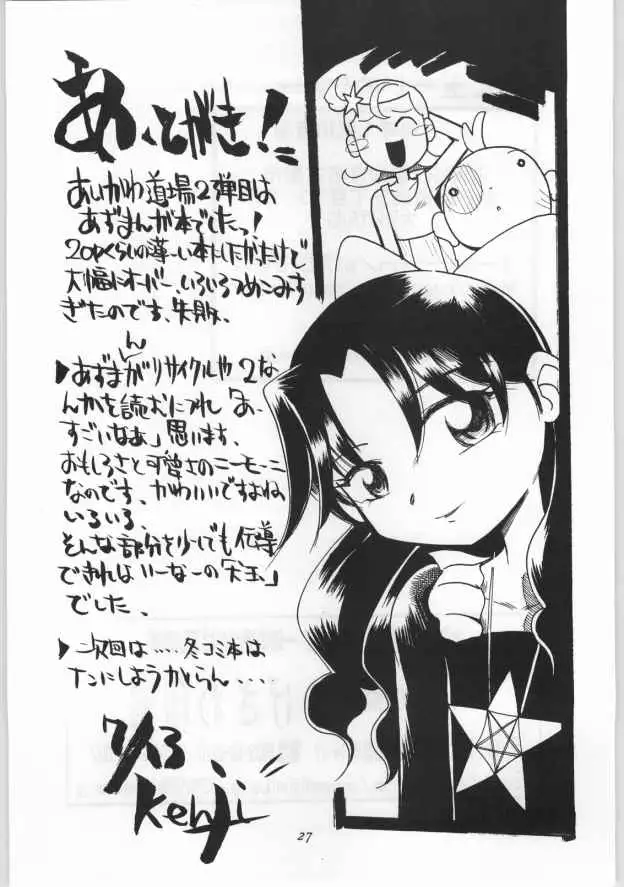 あ、とがき!
あしがわ道場2弾目は
あずまんが本でしたっ!
20Pくらいの薄ーい本にしたかっただけで
大幅にオーバー、いろいろつめこみす
ぎたのです、失敗、
▶あずまんがリサイクルや2な
んかを読むにつれ「あ、
すごいなぁ」思います、
おもしろさと可愛さのニーモーニ
なのです、かわいいですよね
いろいろ、
そんな部分を少しでも伝導
できればいーなーの「天王」
でした、
▶次回は....冬コミ本は
ナンにしようかとらん...
7/13
Kenji
27